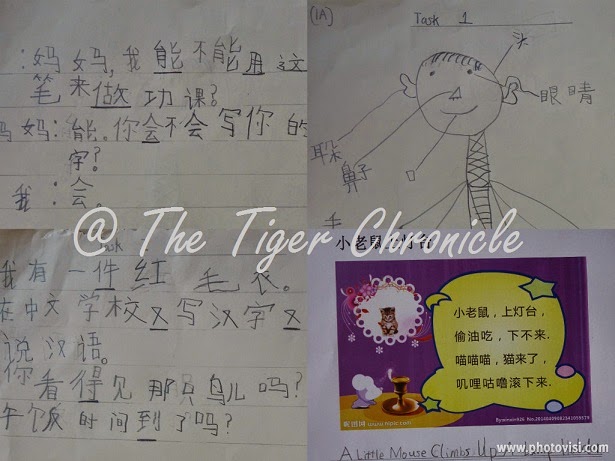 ：妈妈，我能不能用这
笔来做功课？
妈妈：能。你会不会写你的
字？
我：会。
(1A)
Task 1
头
眼睛
耳朵
鼻子
口
手
@ The Tiger Chronicle
Task
我有一件红毛衣。
在中文学校又写汉字又
说汉语。
你看得见那只鸟儿吗？
午饭时间到了吗？
小老鼠上灯台
小老鼠，上灯台，
偷油吃，下不来.
喵喵喵，猫来了，
叽哩咕噜滚下来.
昵图网 www.nipic.com
A Little Mouse Climbs Up
www.photovisi.com